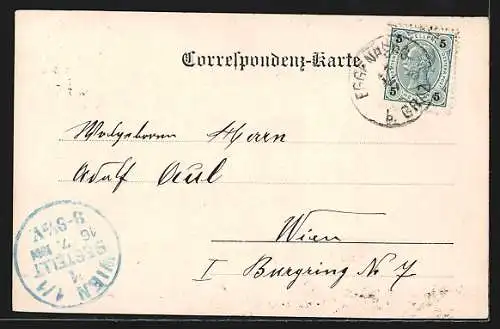 Correspondenz-Karte.
5 5
5 5
EGGENBERG
b. GRAZ
Wolgeboren Herrn
Adolf
Wien
I Burgring No 7
WIEN 1/1
BESTELLT
16. 7.
9-